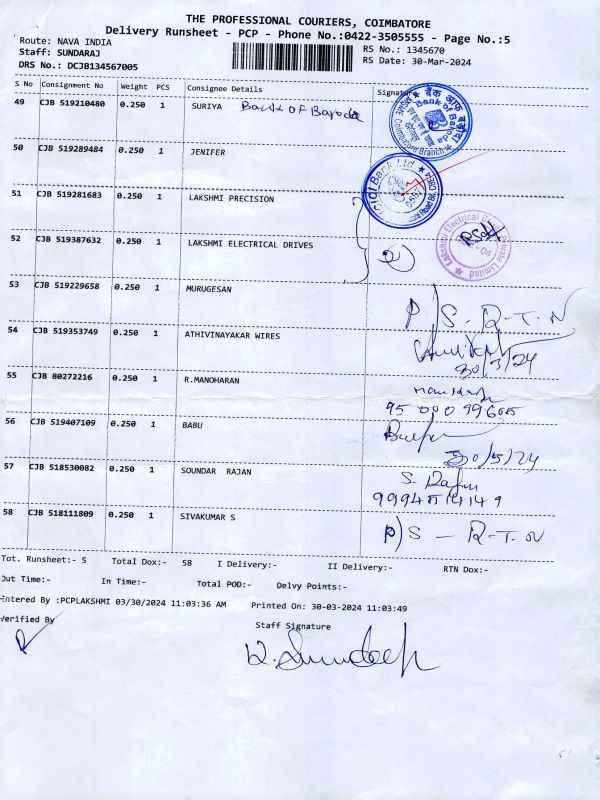 THE PROFESSIONAL COURIERS, COIMBATORE
Delivery Runsheet - PCP - Phone No.:0422-3505555 - Page No.:5
Route: NAVA INDIA
RS No.: 1345670
Staff: SUNDARAJ
RS Date: 30-Mar-2024
DRS No.: DCJB134567005
S No Consignment No Weight PCS Consignee Details Signature
49 CJB 519210480 0.250 1 SURIYA Bank OF Baroda
बैंक ऑफ़ बड़ौदा
Bank of Baroda
Coimbatore Branch
50 CJB 519289484 0.250 1 JENIFER
Bank Ltd.
51 CJB 519281683 0.250 1 LAKSHMI PRECISION
52 CJB 519387632 0.250 1 LAKSHMI ELECTRICAL DRIVES
Lakshmi Electrical Drives Private Limited
53 CJB 519229658 0.250 1 MURUGESAN P/S - R-T-N
54 CJB 519353749 0.250 1 ATHIVINAYAKAR WIRES
30/3/24
55 CJB 80272216 0.250 1 R.MANOHARAN
56 CJB 519407109 0.250 1 BABU
57 CJB 518530082 0.250 1 SOUNDAR RAJAN
58 CJB 518111809 0.250 1 SIVAKUMAR S P/S - R-T-N
Tot. Runsheet:- 5 Total Dox:- 58 I Delivery:- II Delivery:- RTN Dox:-
Out Time:- In Time:- Total POD:- Delvy Points:-
Entered By :PCPLAKSHMI 03/30/2024 11:03:36 AM Printed On: 30-03-2024 11:03:49
Verified By Staff Signature